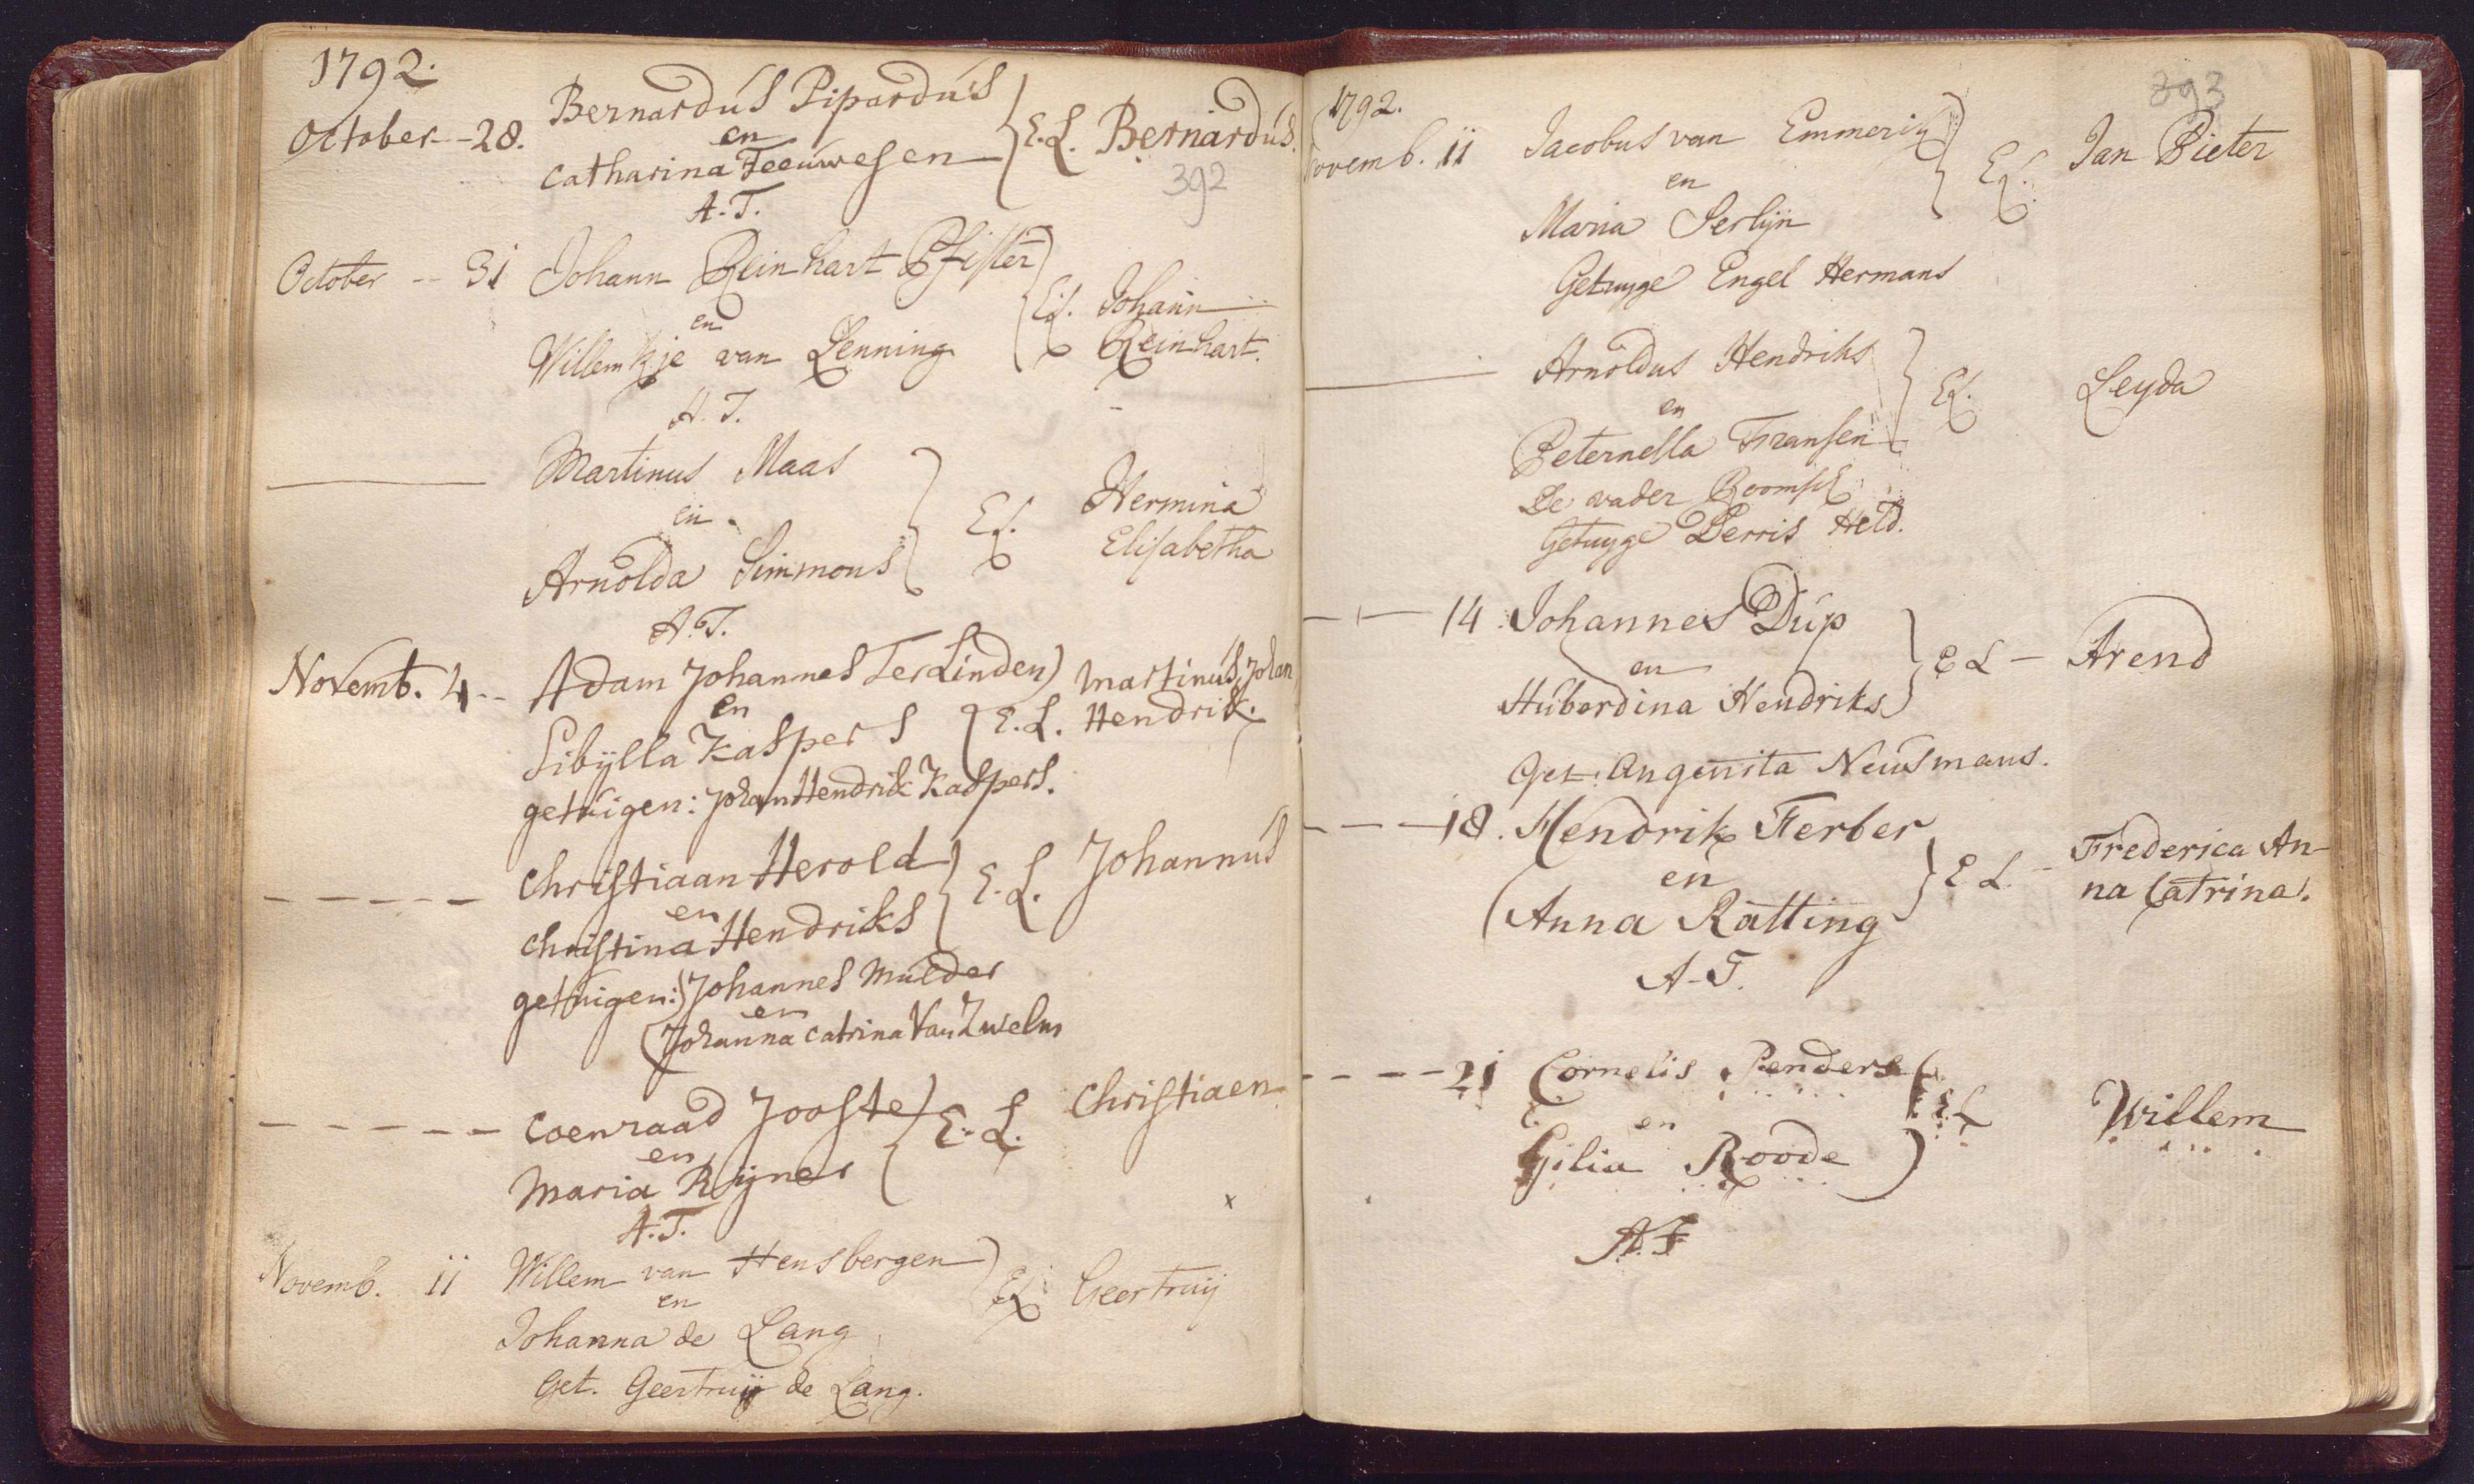 1792.
October--28. Bernardus Pipardus
en
Catharina Teeuwesen } E.L. Bernardus.
392
A.T.
October -- 31 Johann Reinhart Pfister
en } E.L. Johann
Willemkje van Lenning Reinhart.
A.T.
Martinus Maas
en } E.L. Hermina
Arnolda Simmons Elisabetha
A.T.
Novemb. 4-- Adam Johannes TerLinden) Martinus Johan
en
Sibÿlla Kaspers { E.L. Hendrik.
getuigen: Johan Hendrik Kaspers.
----- Christiaan Herold
en } E.L. Johannus
Christina Hendriks
getuigen: Johannes Mulder
en
Johanna Catrina Van Zwelm
----- Coenraad Jooste
en } E.L. Christiaen
Maria Rijner
A.T.
Novemb. 11 Willem van Hensbergen
en } E.L. Geertruij
Johanna de Lang
Get. Geertruij de Lang.
1792.
393
Novemb. 11 Jacobus van Emmerik
en } E.L. Jan Pieter
Maria Serlijn
Getuyge Engel Hermans
Arnoldus Hendriks
en } E.L. Leyda
Peternella Fransen
De vader Roomsch
Getuyge Derris Held.
--- 14. Johannes Dup
en } E L - Arend
Huberdina Hendriks
Get: Angenita Neusmans.
---18. Hendrik Ferber
en } E L. - Frederica An-
Anna Ratting na Catrina.
A-T.
----21 Cornelis Penders
en } E.L Willem
Gilia Roode
A.T